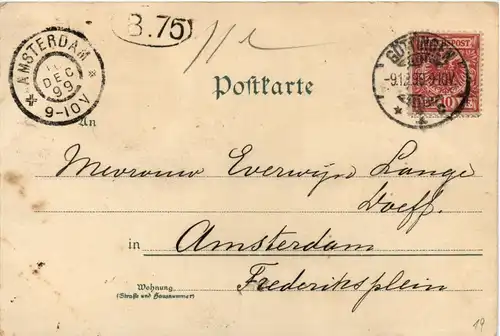 B.75
AMSTERDAM
DEC
99
9-10V
GÖTTINGEN
9.12.99.9-10V.
Postkarte
An
Mevrouw Everwijn Lange
Doeff.
in Amsterdam
Frederiksplein
Wohnung
(Straße und Hausnummer)